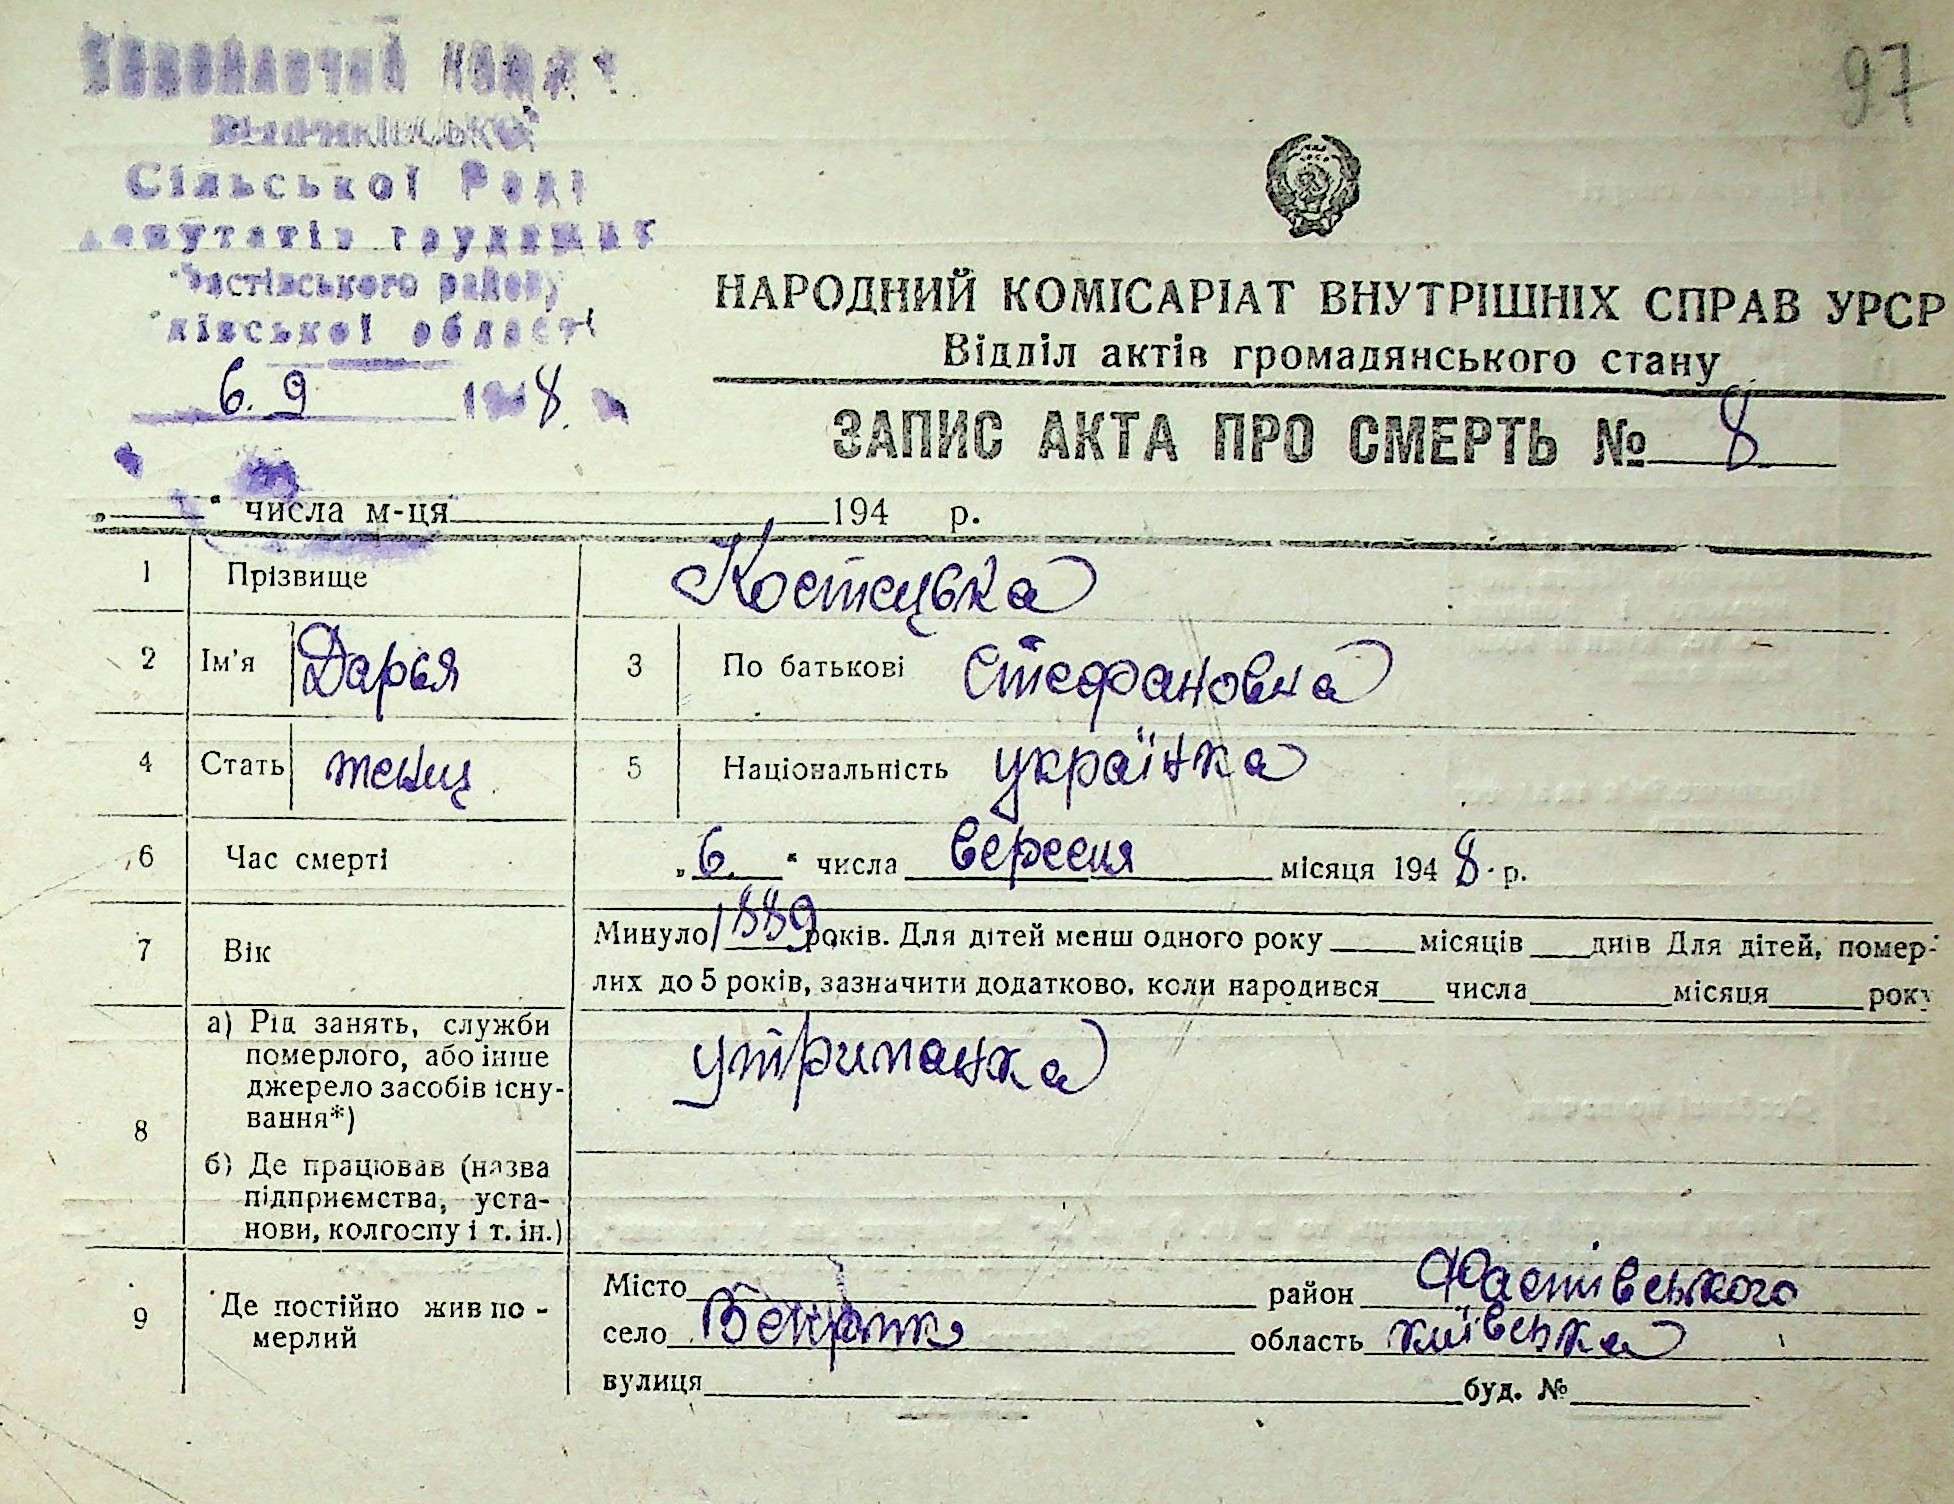 97
Сільської Ради
депутатів трудящих
Фастівського району
Київської області
6. 9 1948.
НАРОДНИЙ КОМІСАРІАТ ВНУТРІШНІХ СПРАВ УРСР
Відділ актів громадянського стану
ЗАПИС АКТА ПРО СМЕРТЬ № 8
„ “ числа м-ця 194 р.
1 Прізвище Костецька
2 Ім'я Дарья 3 По батькові Стефановна
4 Стать женщ 5 Національність українка
6 Час смерті „6.“ числа вересня місяця 1948 р.
7 Вік Минуло 1889 років. Для дітей менш одного року місяців днів Для дітей, помер-
лих до 5 років, зазначити додатково, коли народився числа місяця року
8 а) Рід занять, служби
померлого, або інше
джерело засобів існу-
вання*)
утриманка
б) Де працював (назва
підприємства, уста-
нови, колгоспу і т. ін.)
9 Де постійно жив по-
мерлий
Місто район Фастівського
село область київська
вулиця буд. №